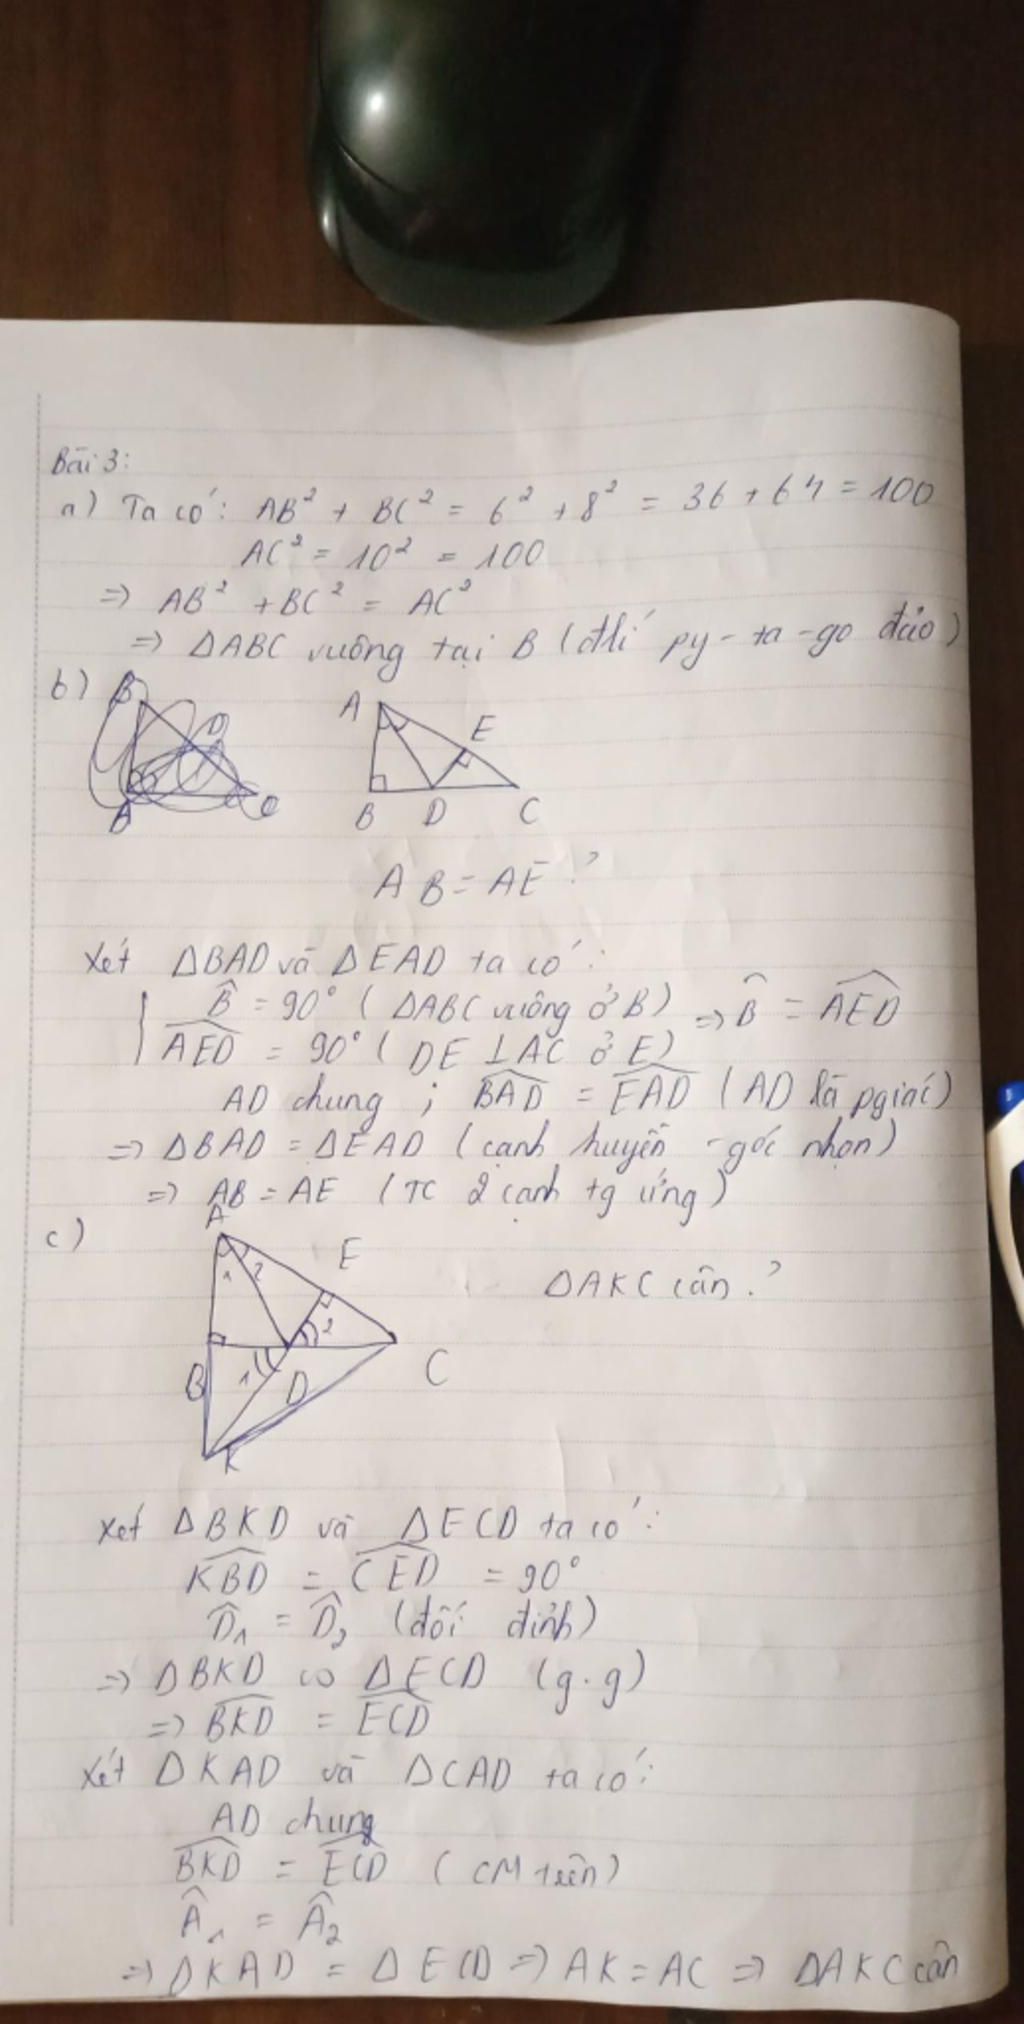 Bài 3:
a) Ta có: AB² + BC² = 6² + 8² = 36 + 64 = 100
AC² = 10² = 100
=> AB² + BC² = AC²
=> ΔABC vuông tại B (đlí py-ta-go đảo)
b)
A
E
B D C
AB = AE ?
Xét ΔBAD và ΔEAD ta có:
B̂ = 90° (ΔABC vuông ở B) => B̂ = \widehat{AED}
\widehat{AED} = 90° (DE ⊥ AC ở E)
AD chung ; \widehat{BAD} = \widehat{EAD} (AD là pgiác)
=> ΔBAD = ΔEAD (cạnh huyền - góc nhọn)
=> AB = AE (TC 2 cạnh tg ứng)
c)
A
E
1 2
ΔAKC cân ?
2
B 1 D C
K
Xét ΔBKD và ΔECD ta có:
\widehat{KBD} = \widehat{CED} = 90°
D̂₁ = D̂₂ (đối đỉnh)
=> ΔBKD ∽ ΔECD (g.g)
=> \widehat{BKD} = \widehat{ECD}
Xét ΔKAD và ΔCAD ta có:
AD chung
\widehat{BKD} = \widehat{ECD} (CM trên)
Â₁ = Â₂
=> ΔKAD = ΔECD => AK = AC => ΔAKC cân